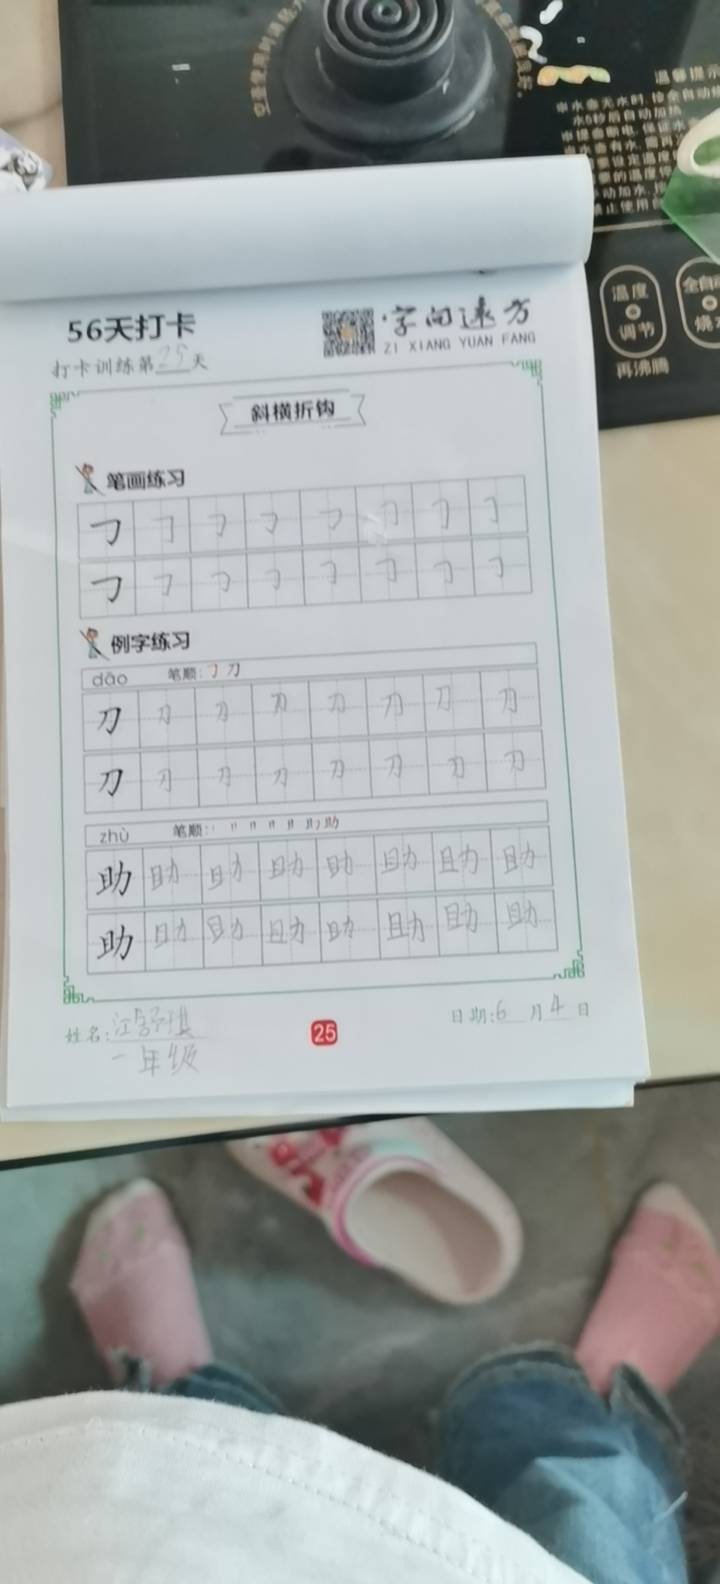 温馨提示
温度
调节
再沸腾
全自动
56天打卡
字间远方
ZI XIANG YUAN FANG
打卡训练第25天
斜横折钩
笔画练习
例字练习
dāo 笔顺:
刀 刀 刀 刀 刀 刀 刀 刀
刀 刀 刀 刀 刀 刀 刀 刀
zhù 笔顺:
助 助 助 助 助 助 助 助
助 助 助 助 助 助 助 助
姓名:
一年级
25
日期:6月4日